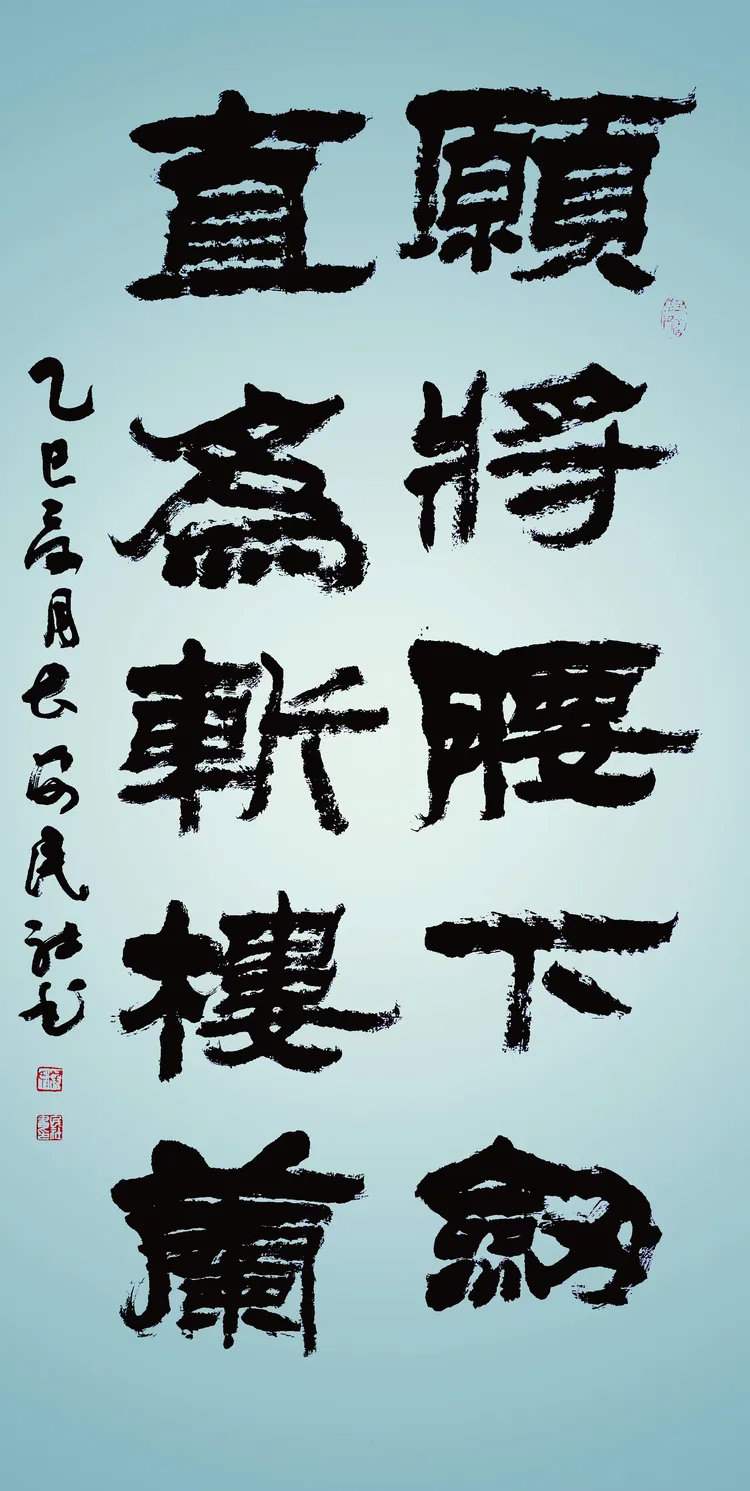 願將腰下劒
直為斬樓蘭
乙巳夏月長安民社書